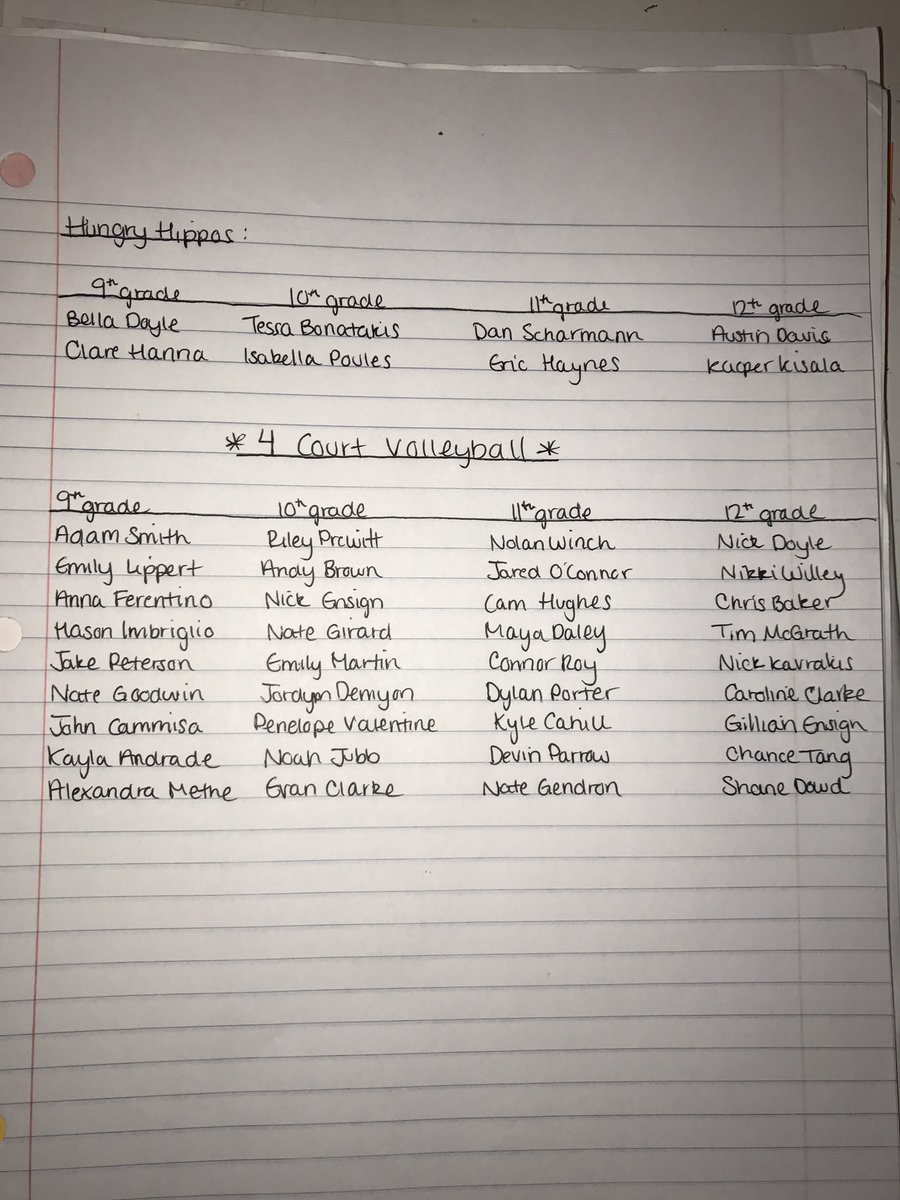 Hungry Hippos:
9th grade 10th grade 11th grade 12th grade
Bella Doyle Tessa Bonatakis Dan Scharmann Austin Davis
Clare Hanna Isabella Poules Eric Haynes Kacper Kisala
*4 Court Volleyball*
9th grade 10th grade 11th grade 12th grade
Adam Smith Riley Prewitt Nolan Winch Nick Doyle
Emily Lippert Andy Brown Jared O'Connor Nikki Willey
Anna Ferentino Nick Ensign Cam Hughes Chris Baker
Mason Imbriglio Nate Girard Maya Daley Tim McGrath
Jake Peterson Emily Martin Connor Roy Nick Kavrakis
Nate Goodwin Jordyn Demyon Dylan Porter Caroline Clarke
John Cammisa Penelope Valentine Kyle Cahill Gillian Ensign
Kayla Andrade Noah Jubb Devin Parrow Chance Tang
Alexandra Methe Evan Clarke Nate Gendron Shane Dowd